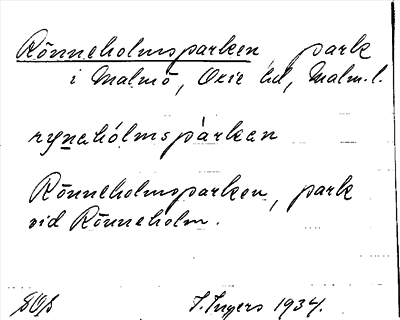 Rönneholmsparken, park
i Malmö, Oxie hd, Malm. l.
rynahólmspàrkan
Rönneholmsparken, park
vid Rönneholm.
I. Ingers 1934.